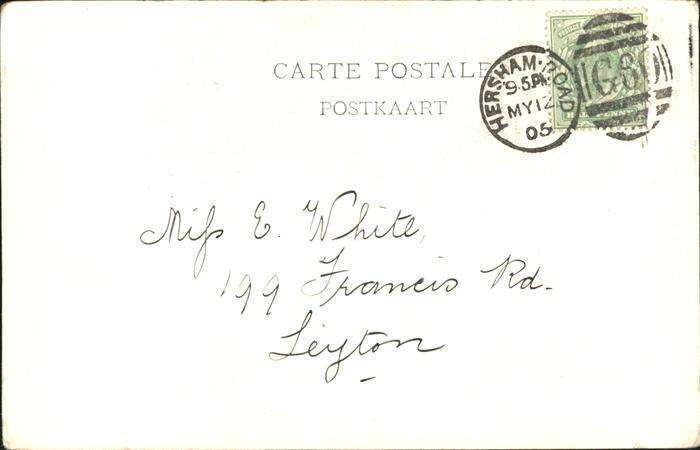 CARTE POSTALE
POSTKAART
HERSHAM·ROAD
9·5PM
MY12
05
G80
Miss E. White,
199 Francis Rd.
Leyton